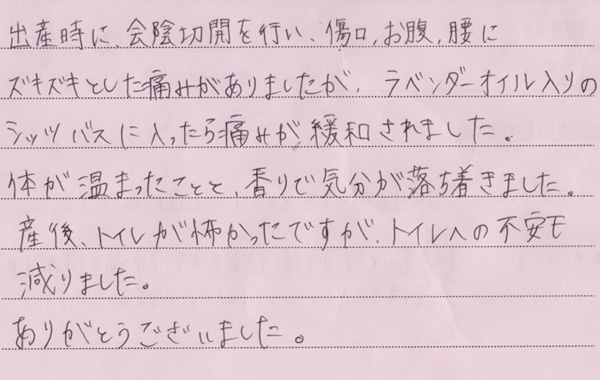 出産時に、会陰切開を行い、傷口,お腹,腰に
ズキズキとした痛みがありましたが、ラベンダーオイル入りの
シッツバスに入ったら痛みが緩和されました。
体が温まったことと、香りで気分が落ち着きました。
産後、トイレが怖かったですが、トイレへの不安も
減りました。
ありがとうございました。